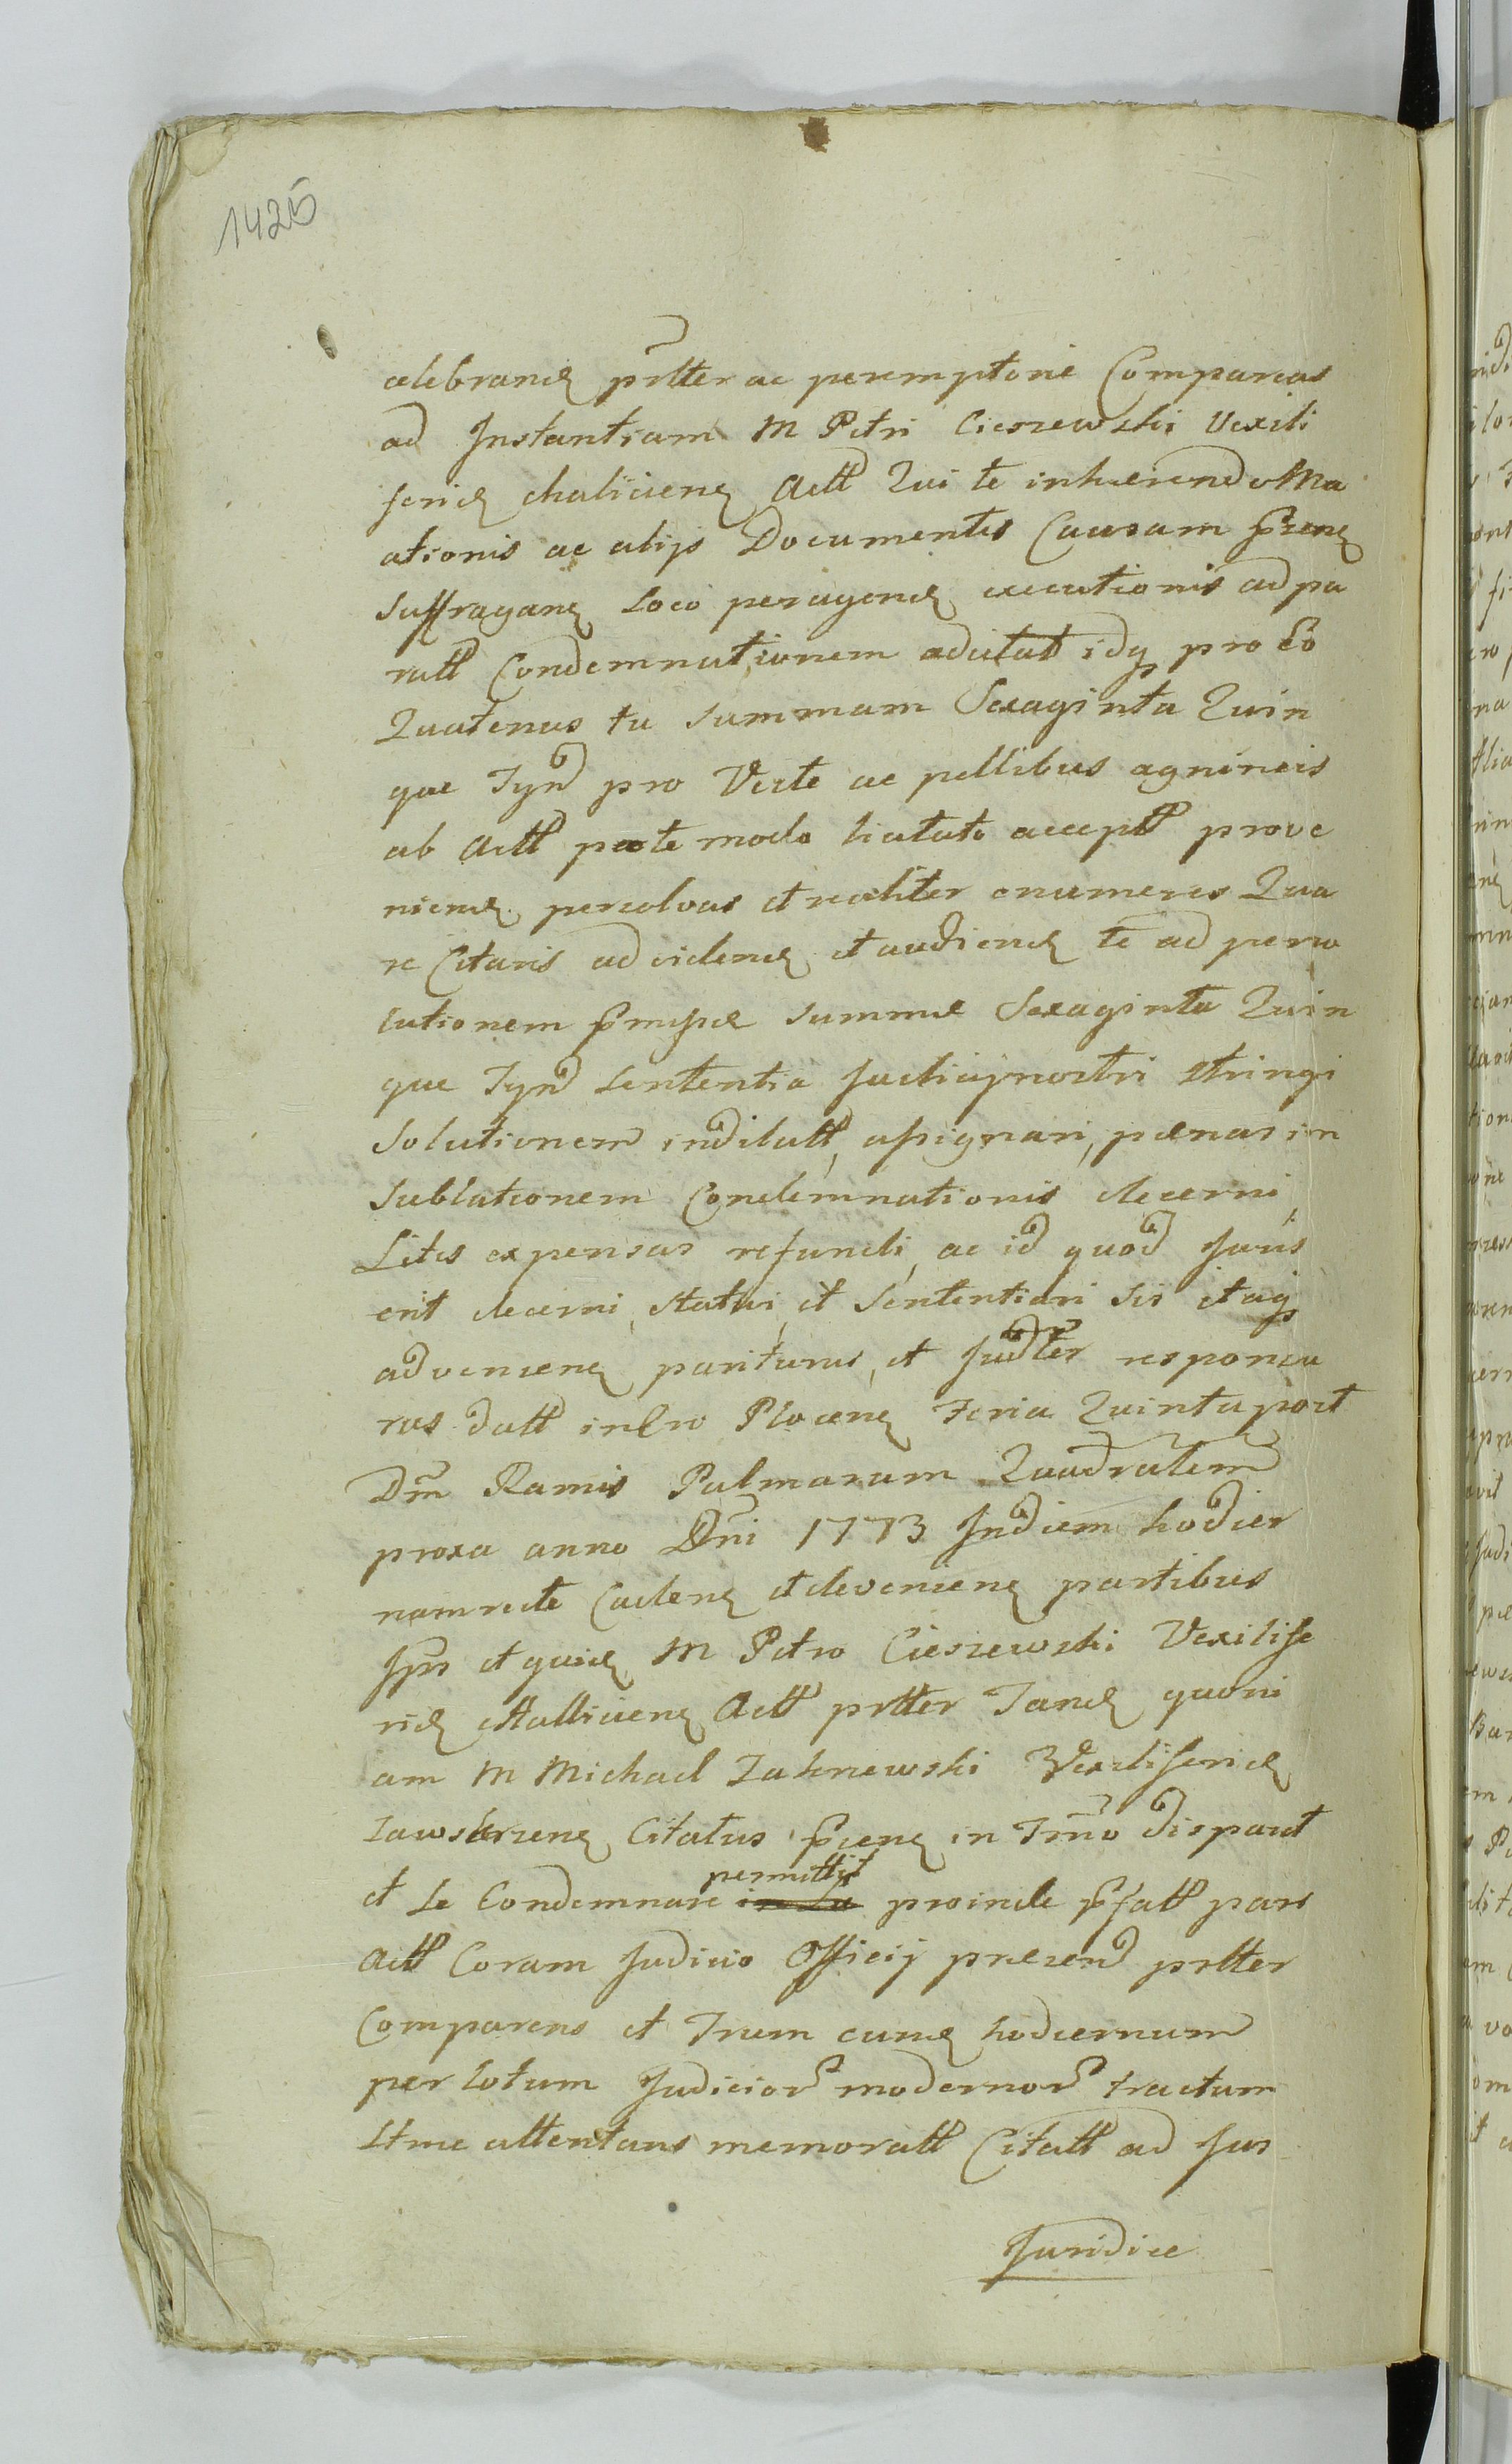 1425
celebrand prtter ac peremptorie Compareas
ad Instantiam M Petri Cieszewski Vexili
ferid chalicien Actt Qui te inhaerendo Ma
ationis ac alijs Documentis Causam pñzen
suffragan Loco peragend executionis ad pa
ratt Condemnationem adcitat idq pro Eo
Quatenus tu summam Sexaginta Quin
que Tynf pro Veste ac pellibus agnineis
ab Actt parte modo licitato accept prove
niend persolvas et realiter enumeres Qua
re Citaris ad vidend et audiend te ad perso
lutionem pmissae summae Sexaginta Quin
que Tynf Sententia Judicij nostri stringi
Solutionem indilatt, assignari, paenas in
sublationem Condemnationis decerni,
Litis expensas refundi, ac id quod Juris
erit decerni, statui, et Sententiari sis itaq
advenien pariturus, et Judter responsu
rus datt in Cro Plocen Feria Quinta post
Dm Ramis Palmarum Quadratem
proxa anno Dni 1773 In diem hodier
nam recte Caden et devenien partibus
Ips et quid M Petro Cieszewski Vexilife
rid Hallicien Actt prtter Tand quoni
am M Michael Zakrzewski Vexiliferid
Zawskrzen Citatus pñcen in Tmo disparet
et se Condemnare permittit proinde pfatt pars
Actt Coram Judicio Officij praesend prtter
Comparens et Trum eund hodiernum
per totum Judicior modernor tractum
Ltme attentans memoratt Citatt ad Jus
Juridice